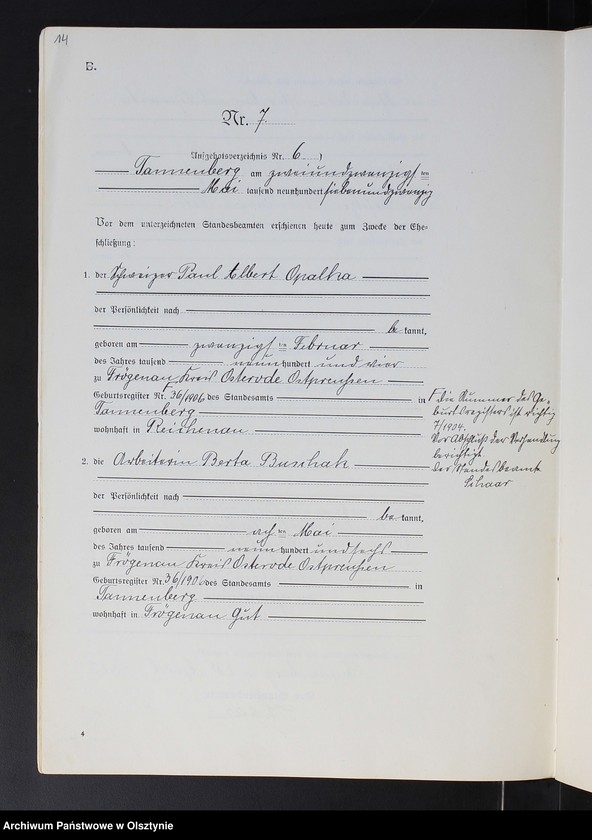 14
B.
Nr. 7
Aufgebotsverzeichnis Nr. 6 )
Tannenberg am zweiundzwanzigsten
Mai tausend neunhundert siebenundzwanzig
Vor dem unterzeichneten Standesbeamten erschienen heute zum Zwecke der Ehe-
schließung:
1. der Schweizer Paul Albert Opalka
der Persönlichkeit nach
be kannt,
geboren am zwanzigsten Februar
des Jahres tausend neunhundert und vier
zu Frögenau Kreis Osterode Ostpreußen
Geburtsregister Nr. 36/1906 des Standesamts in
Tannenberg
wohnhaft in Reichenau
Die Nummer des Ge-
burtsregisters ist richtig
7/1904.
Vor Abschluß der Verhandlung
berichtigt.
Der Standesbeamte
Schaar
2. die Arbeiterin Berta Buschak
der Persönlichkeit nach
be kannt,
geboren am achten Mai
des Jahres tausend neunhundert und sechs
zu Frögenau Kreis Osterode Ostpreußen
Geburtsregister Nr. 36/1906 des Standesamts in
Tannenberg
wohnhaft in Frögenau Gut
4
Archiwum Państwowe w Olsztynie